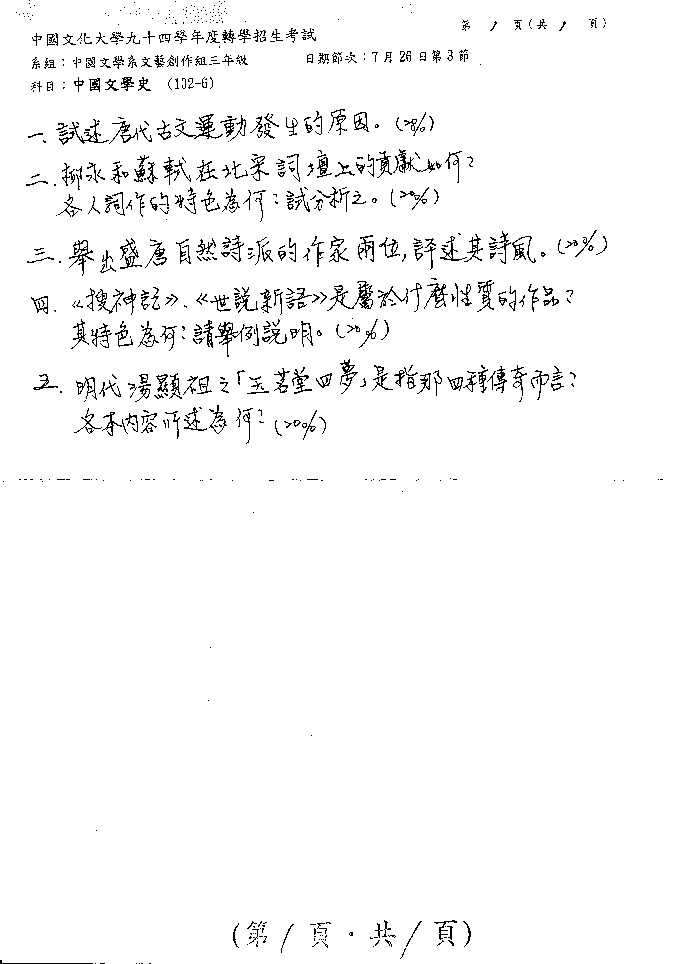 第 1 頁(共 1 頁)
中國文化大學九十四學年度轉學招生考試
系組：中國文學系文藝創作組三年級 日期節次：7月26日第3節
科目：中國文學史 (102-6)
一. 試述唐代古文運動發生的原因。(20%)
二. 柳永和蘇軾在北宋詞壇上的貢獻如何？
各人詞作的特色為何？試分析之。(20%)
三. 舉出盛唐自然詩派的作家兩位，評述其詩風。(20%)
四. 《搜神記》、《世說新語》是屬於什麼性質的作品？
其特色為何？請舉例說明。(20%)
五. 明代湯顯祖之「玉茗堂四夢」是指那四種傳奇而言？
各本內容所述為何？(20%)
(第 1 頁·共 1 頁)